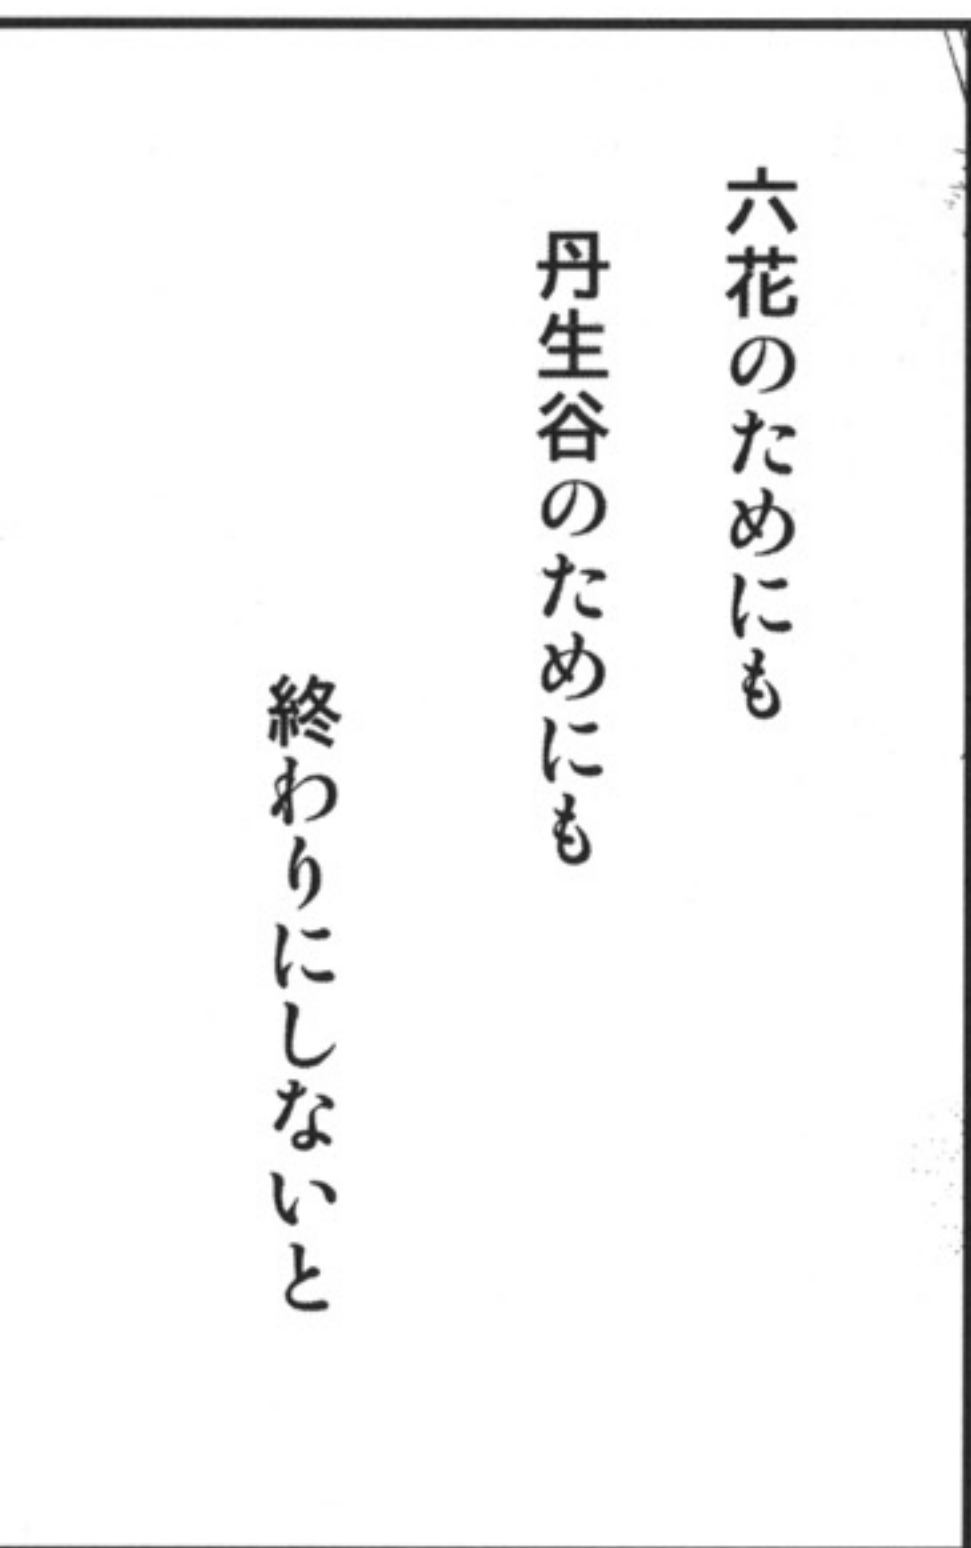 六花のためにも
丹生谷のためにも
終わりにしないと